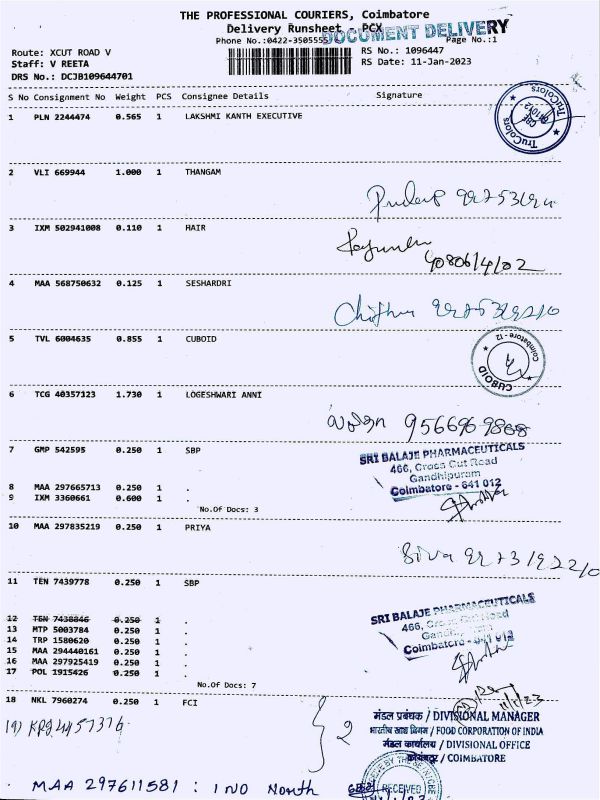 THE PROFESSIONAL COURIERS, Coimbatore
Delivery Runsheet - PCX
DOCUMENT DELIVERY
Phone No.:0422-3505555 Page No.:1
Route: XCUT ROAD V RS No.: 1096447
Staff: V REETA RS Date: 11-Jan-2023
DRS No.: DCJB109644701
S No Consignment No Weight PCS Consignee Details Signature
1 PLN 2244474 0.565 1 LAKSHMI KANTH EXECUTIVE
TruColors
CBE
641012
TruColors
2 VLI 669944 1.000 1 THANGAM
3 IXM 502941008 0.110 1 HAIR
4 MAA 568750632 0.125 1 SESHARDRI
5 TVL 6004635 0.855 1 CUBOID
Coimbatore - 12
CUBOID
6 TCG 40357123 1.730 1 LOGESHWARI ANNI
9566969868
7 GMP 542595 0.250 1 SBP
SRI BALAJE PHARMACEUTICALS
466, Cross Cut Road
Gandhipuram
Coimbatore - 641 012
8 MAA 297665713 0.250 1 .
9 IXM 3360661 0.600 1 .
No.Of Docs: 3
10 MAA 297835219 0.250 1 PRIYA
Siva
11 TEN 7439778 0.250 1 SBP
SRI BALAJE PHARMACEUTICALS
466, Cross Cut Road
Gandhipuram
Coimbatore - 641 012
12 TEN 7438846 0.250 1 .
13 MTP 5003784 0.250 1 .
14 TRP 1580620 0.250 1 .
15 MAA 294440161 0.250 1 .
16 MAA 297925419 0.250 1 .
17 POL 1915426 0.250 1 .
No.Of Docs: 7
18 NKL 7960274 0.250 1 FCI
19) KRG 4457376
2
मंडल प्रबंधक / DIVISIONAL MANAGER
भारतीय खाद्य निगम / FOOD CORPORATION OF INDIA
मंडल कार्यालय / DIVISIONAL OFFICE
कोयंबटूर / COIMBATORE
MAA 297611581 : IND Month
RECEIVED